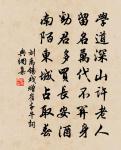 學道深山許老人
留名萬代不關身
勸君多買長安酒
南陌東城占取春
劉禹錫戲贈崔千牛詞
典網集